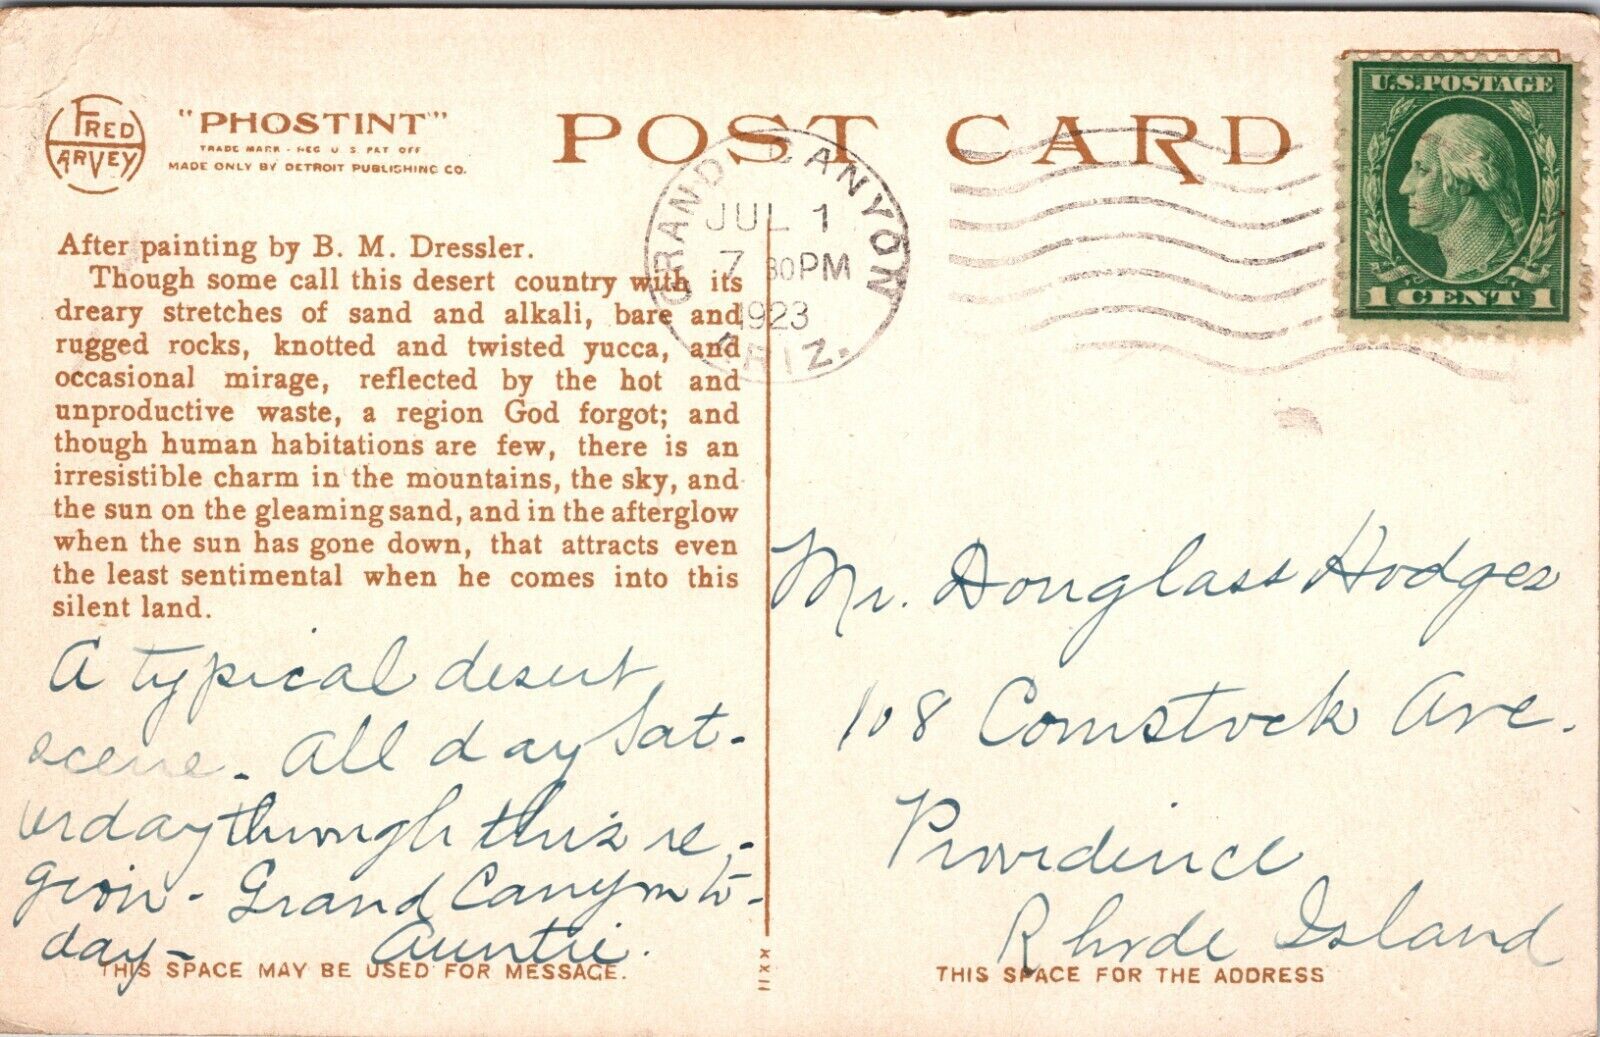 FRED
HARVEY
"PHOSTINT"
TRADE MARK - REG U S PAT OFF
MADE ONLY BY DETROIT PUBLISHING CO.
POST CARD
GRAND CANYON
JUL 1
7 30PM
1923
ARIZ.
U.S. POSTAGE
1 CENT 1
After painting by B. M. Dressler.
Though some call this desert country with its
dreary stretches of sand and alkali, bare and
rugged rocks, knotted and twisted yucca, and
occasional mirage, reflected by the hot and
unproductive waste, a region God forgot; and
though human habitations are few, there is an
irresistible charm in the mountains, the sky, and
the sun on the gleaming sand, and in the afterglow
when the sun has gone down, that attracts even
the least sentimental when he comes into this
silent land.
A typical desert
scene. All day Sat-
urday through this re-
gion - Grand Canyon to-
day - Auntie.
THIS SPACE MAY BE USED FOR MESSAGE.
XXII
Mr. Douglass Hodges
108 Comstock Ave.
Providence
Rhode Island
THIS SPACE FOR THE ADDRESS